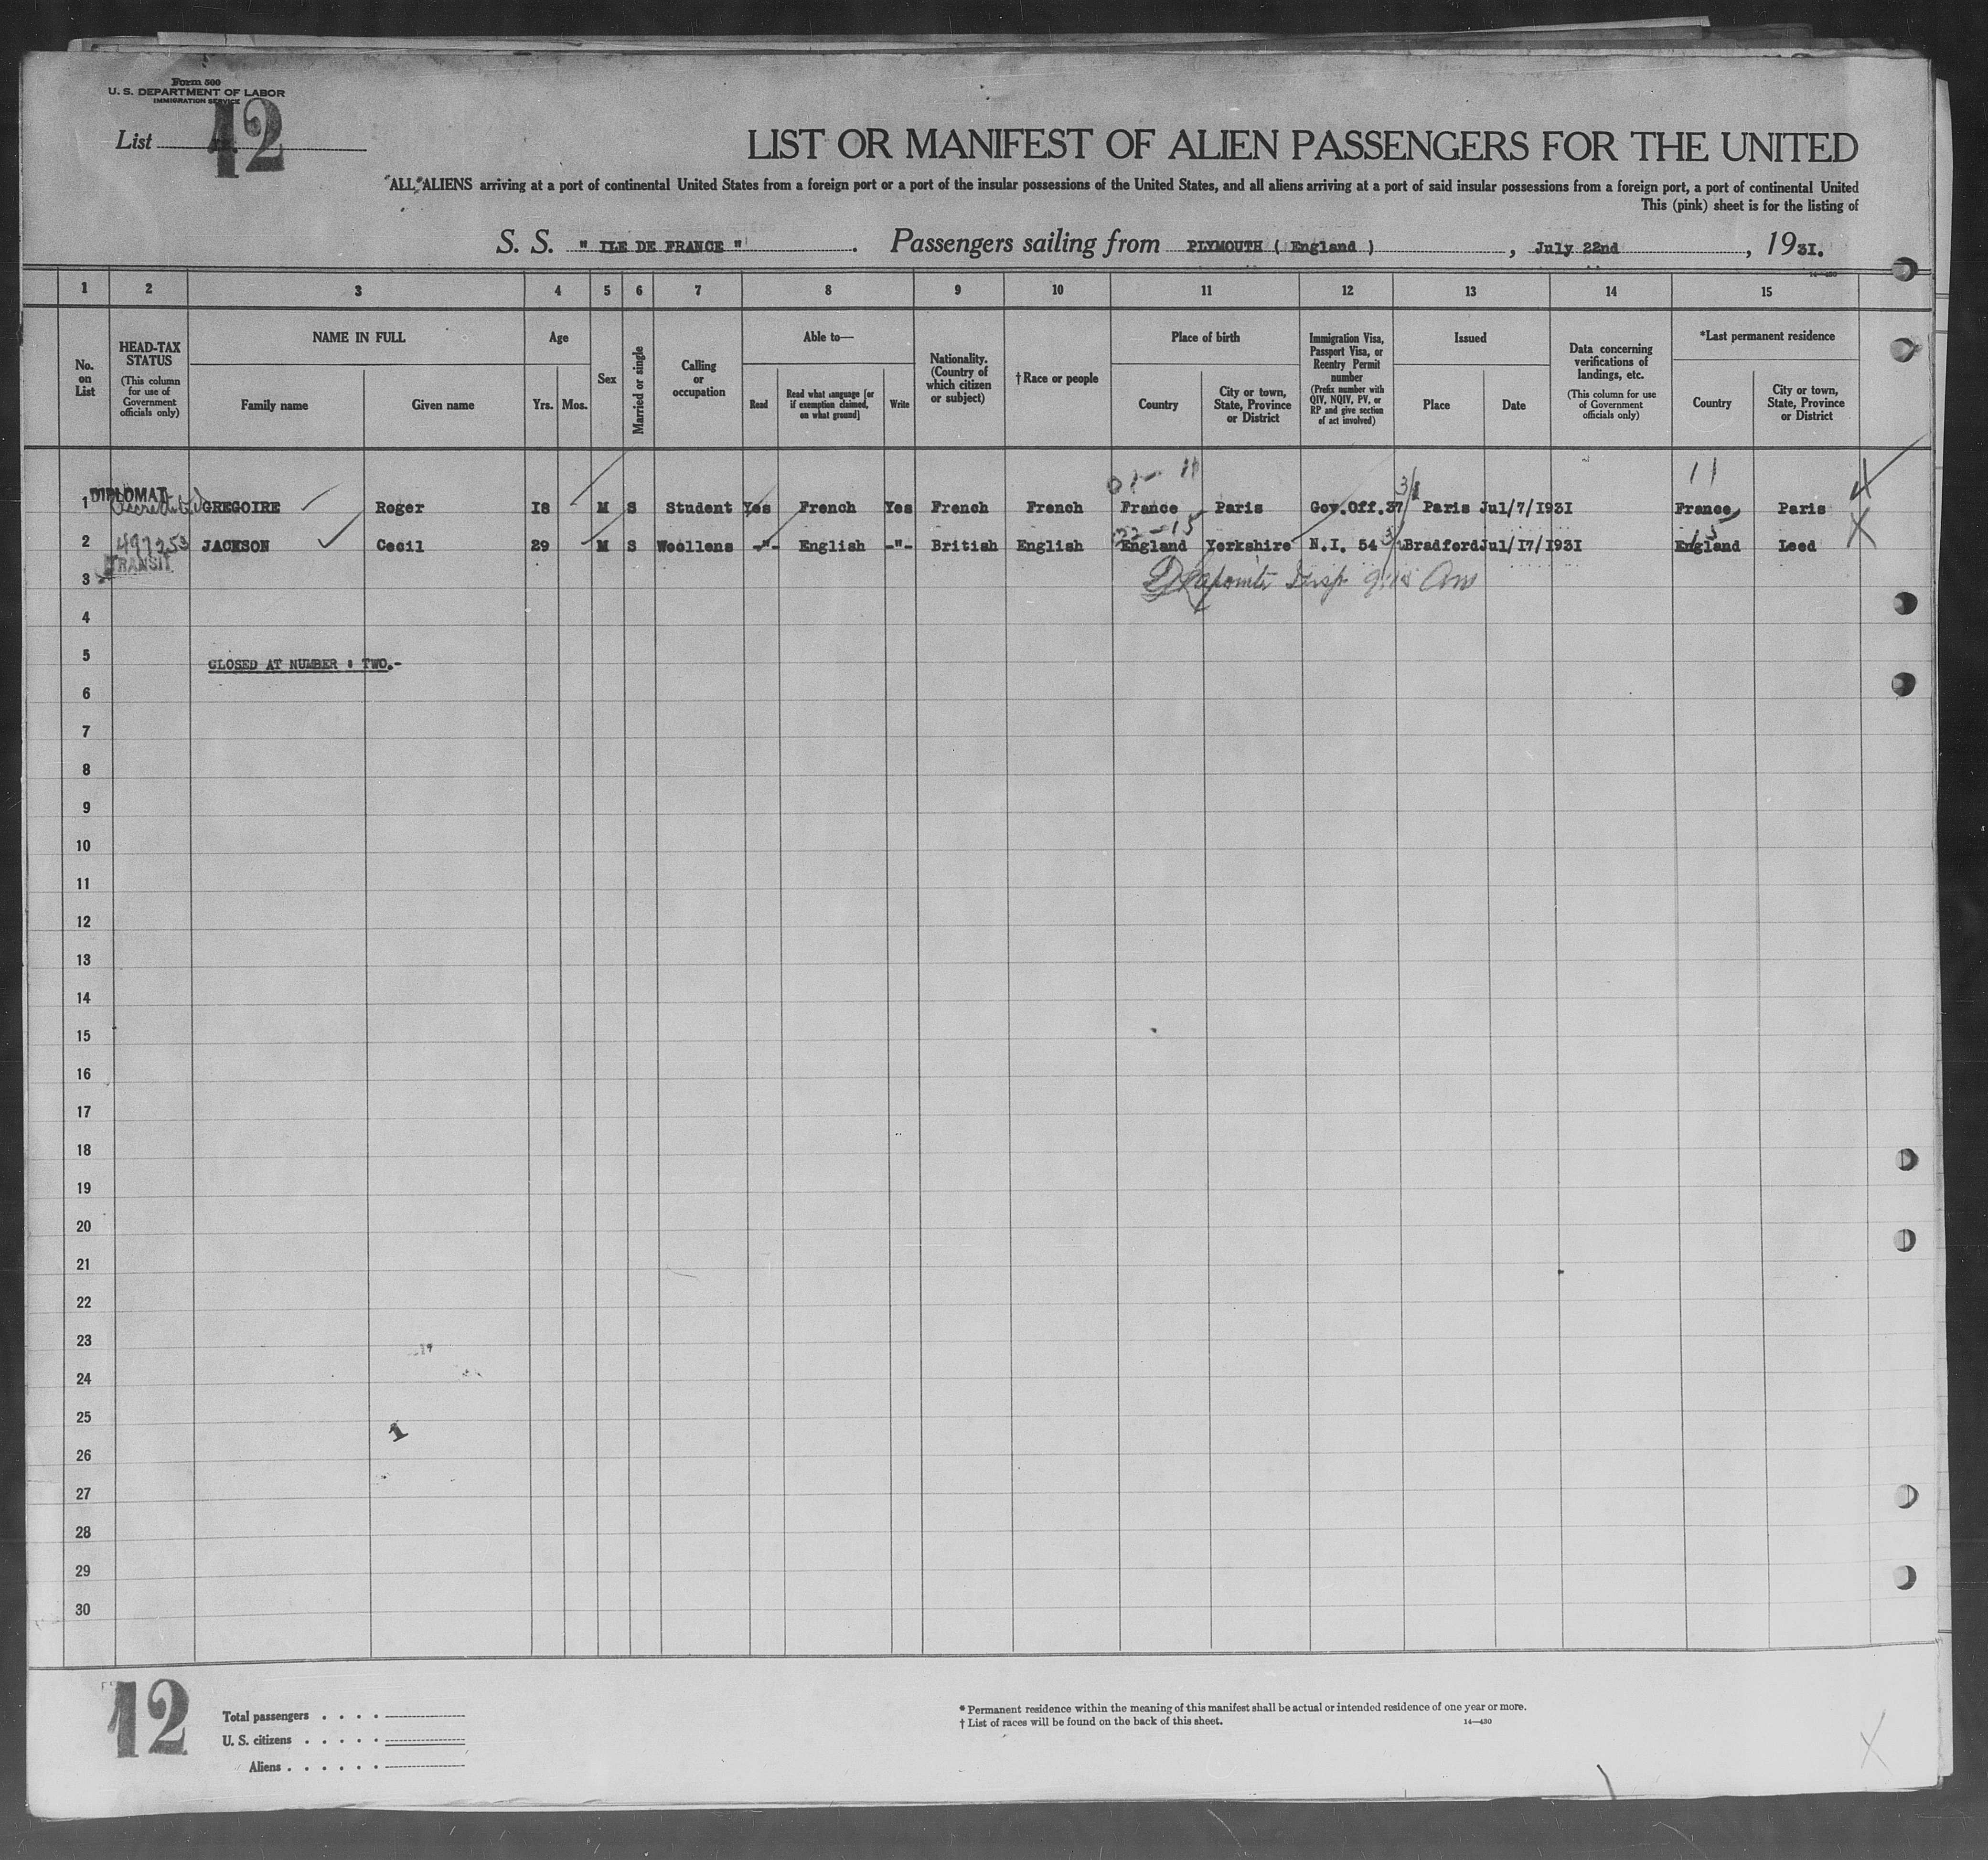 Form 500
U. S. DEPARTMENT OF LABOR
IMMIGRATION SERVICE
List 12
LIST OR MANIFEST OF ALIEN PASSENGERS FOR THE UNITED
ALL ALIENS arriving at a port of continental United States from a foreign port or a port of the insular possessions of the United States, and all aliens arriving at a port of said insular possessions from a foreign port, a port of continental United
This (pink) sheet is for the listing of
S. S. " ILE DE FRANCE " . Passengers sailing from PLYMOUTH ( England ) , July 22nd , 1931.
14—430
1 2 3 4 5 6 7 8 9 10 11 12 13 14 15
No. on List
HEAD-TAX STATUS (This column for use of Government officials only)
NAME IN FULL
Family name Given name
Age
Yrs. Mos.
Sex
Married or single
Calling or occupation
Able to—
Read Read what language [or if exemption claimed, on what ground] Write
Nationality. (Country of which citizen or subject)
†Race or people
Place of birth
Country City or town, State, Province or District
Immigration Visa, Passport Visa, or Reentry Permit number (Prefix number with QIV, NQIV, PV, or RP and give section of act involved)
Issued
Place Date
Data concerning verifications of landings, etc. (This column for use of Government officials only)
*Last permanent residence
Country City or town, State, Province or District
11 11
DIPLOMAT
1 GREGOIRE Roger 18 M S Student Yes French Yes French French France Paris Gov.Off.37 Paris Jul/7/1931 France Paris
15 15
2 497253 JACKSON Cecil 29 M S Woollens -"- English -"- British English England Yorkshire N.I. 54 Bradford Jul/17/1931 England Leed
TRANSIT
3
4
5
CLOSED AT NUMBER : TWO.-
6
7
8
9
10
11
12
13
14
15
16
17
18
19
20
21
22
23
24
25
1
26
27
28
29
30
12
Total passengers . . . .
U. S. citizens . . . . .
Aliens . . . . . .
* Permanent residence within the meaning of this manifest shall be actual or intended residence of one year or more.
† List of races will be found on the back of this sheet. 14—430